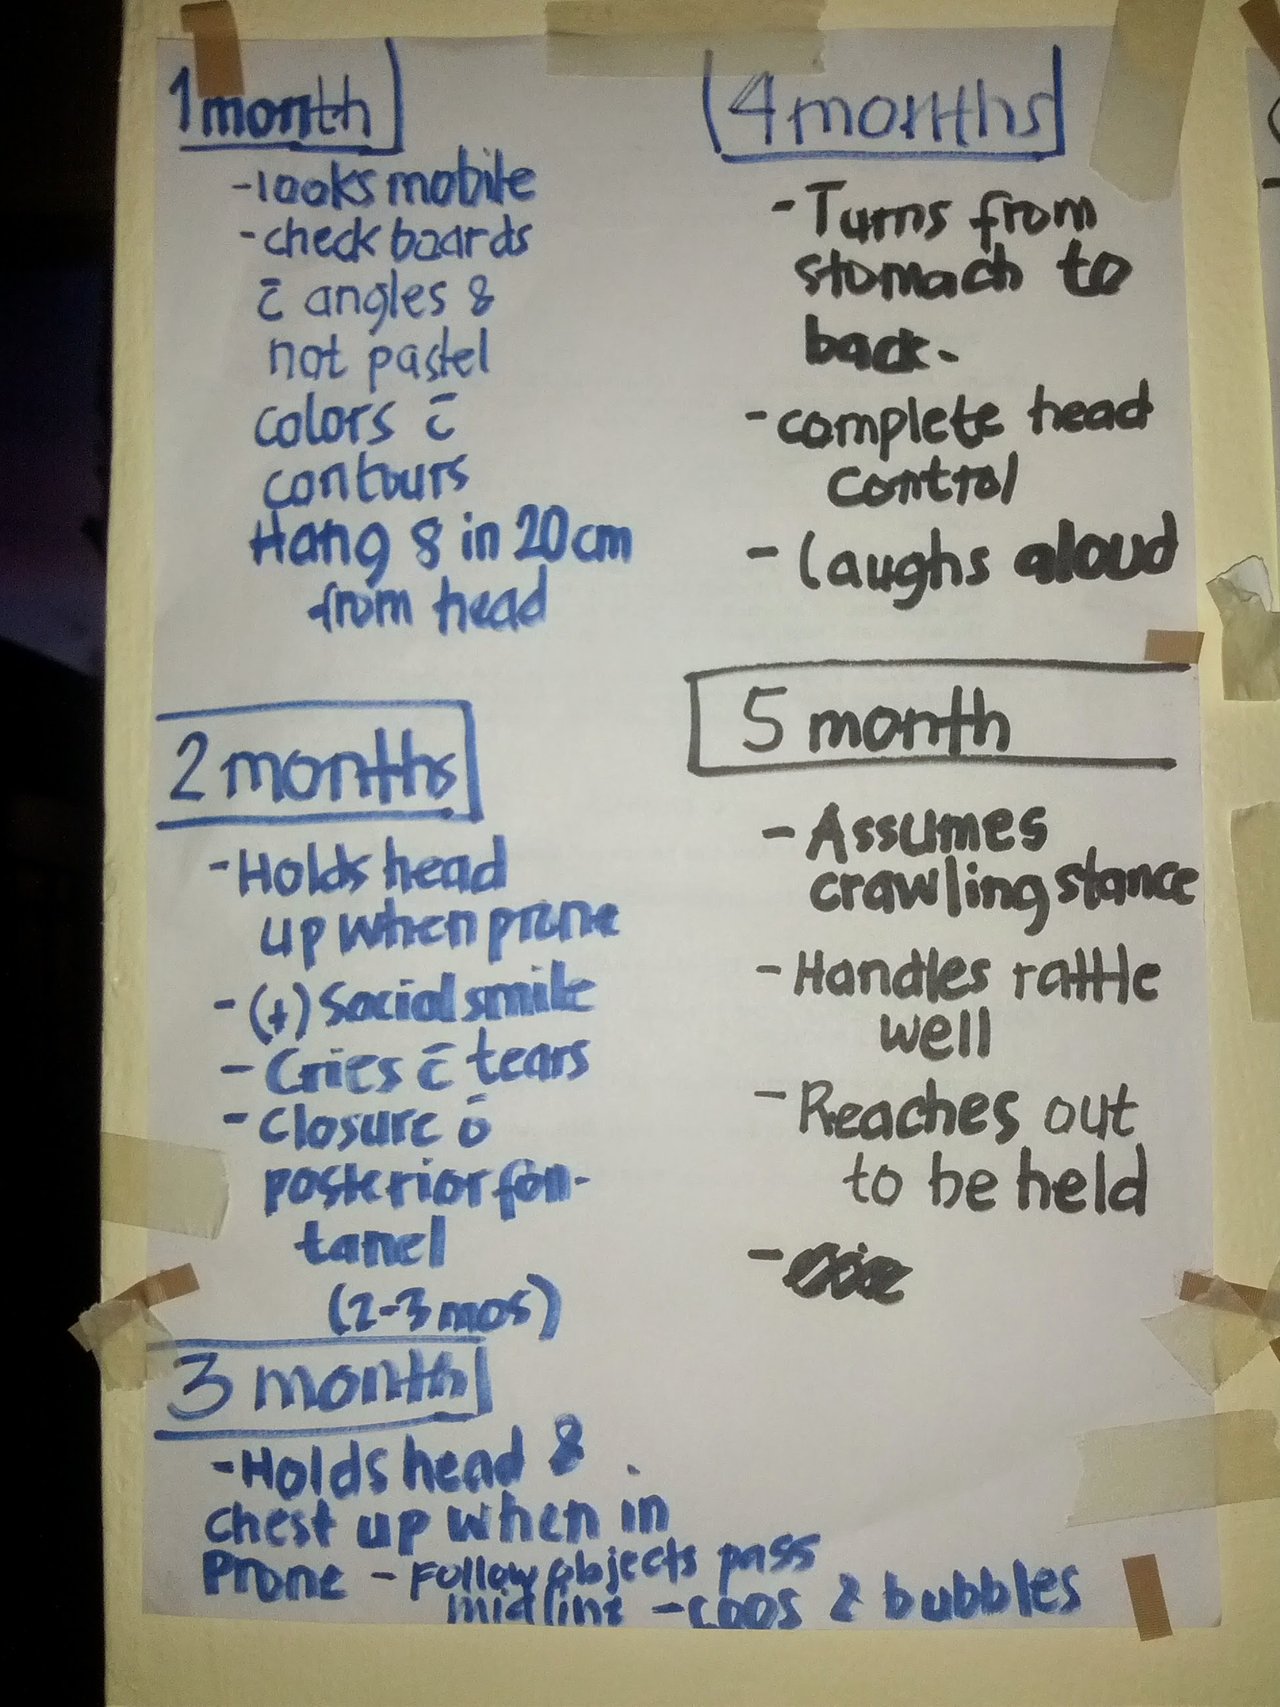 1 month
-looks mobile
-check boards
c̄ angles &
not pastel
colors c̄
contours
Hang & in 20cm
from head
2 months
-Holds head
up when prone
-(+) Social smile
-Cries c̄ tears
-Closure ō
posterior fon-
tanel
(2-3 mos)
3 month
-Holds head &
chest up when in
Prone -Follow objects pass
midline -coos & bubbles
4 months
-Turns from
stomach to
back-
-complete head
control
-laughs aloud
5 month
-Assumes
crawling stance
-Handles rattle
well
-Reaches out
to be held
-